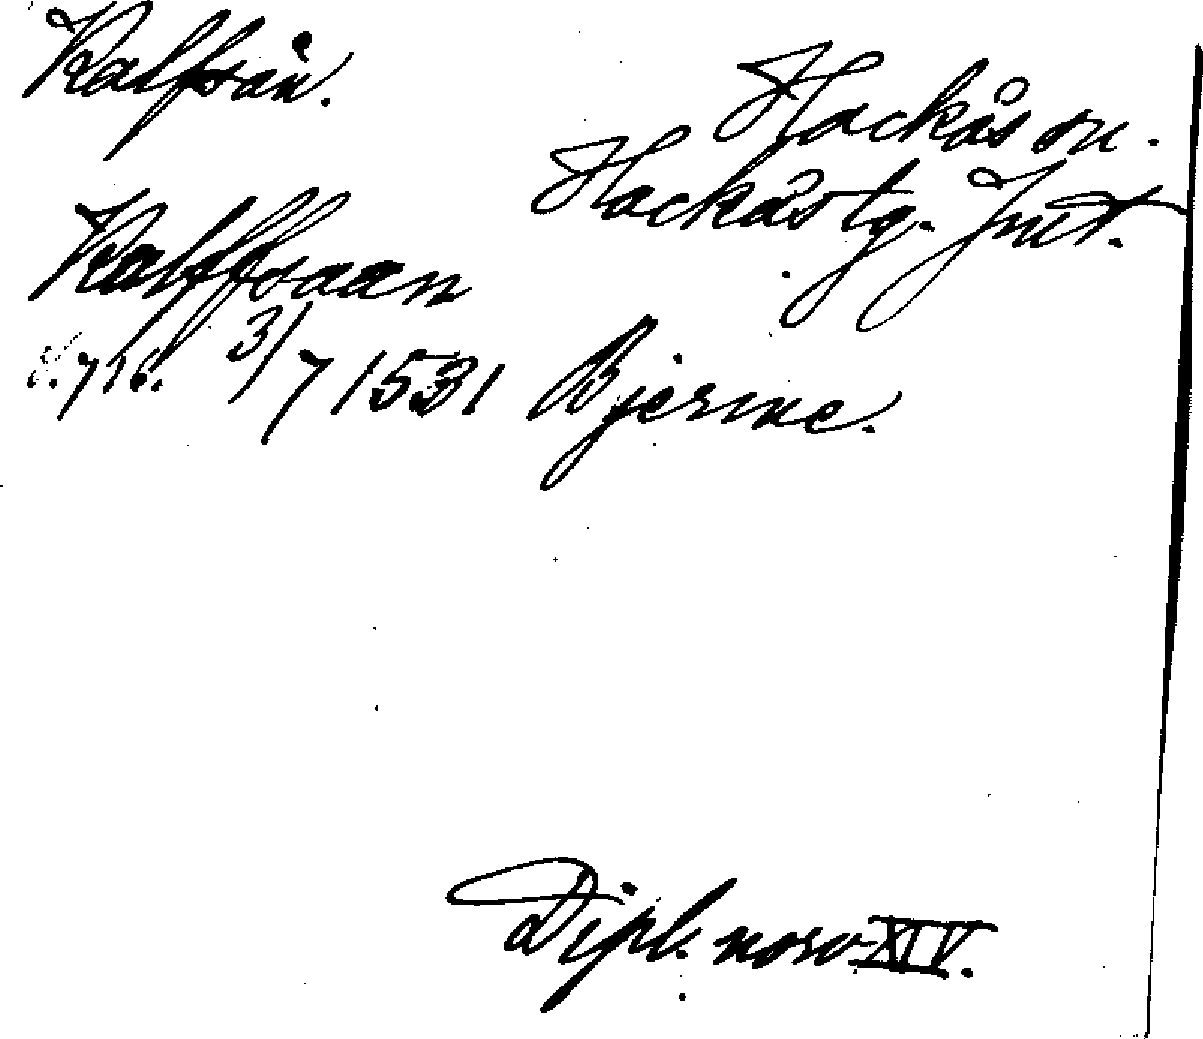 Kalfsån.
Hackås sn.
Hackåstg. Jmt.
Kalffsaan
s. 716. 3/7 1531 Bjerme.
Dipl. norv. XIV.